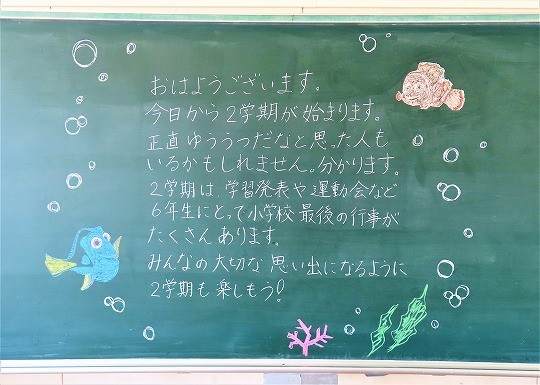 おはようございます。
今日から2学期が始まります。
正直ゆううつだなと思った人も
いるかもしれません。分かります。
2学期は、学習発表や運動会など
6年生にとって小学校最後の行事が
たくさんあります。
みんなの大切な思い出になるように
2学期も楽しもう!